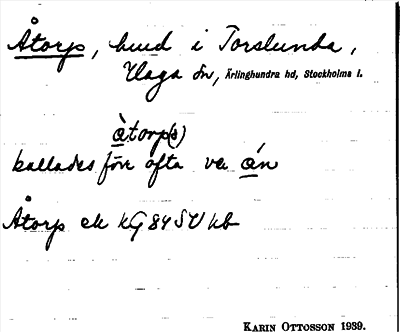 Åtorp, hmd i Torslunda,
Haga sn, Ärlinghundra hd, Stockholms l.
àtorp(s)
kallades förr ofta va án
Åtorp ek KG 84 SV kb
KARIN OTTOSSON 1939.